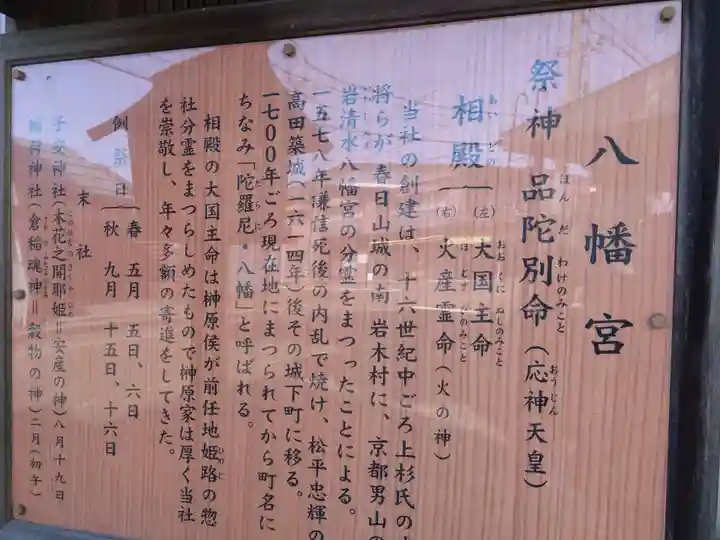 八幡宮
祭神 品陀別命（応神天皇）
ほんだ わけのみこと
おうじん
相殿 （左）大国主命
あいどの
おおくに ぬしのみこと
（右）火産霊命（火の神）
ほむすびのみこと
当社の創建は、十六世紀中ごろ上杉氏の
将らが春日山城の南 岩木村に、京都男山の
岩清水八幡宮の分霊をまつったことによる。
一五七八年謙信死後の内乱で焼け、松平忠輝の
高田築城（一六一四年）後その城下町に移る。
一七〇〇年ごろ現在地にまつられてから町名に
ちなみ「陀羅尼・八幡」と呼ばれる。
だらに
相殿の大国主命は榊原侯が前任地姫路の惣
ひめじ
社分霊をまつらしめたもので榊原家は厚く当社
を崇敬し、年々多額の寄進をしてきた。
例祭日 春 五月 五日、六日
秋 九月 十五日、十六日
末社
子安神社（木花之開耶姫＝安産の神）八月十九日
このはなのさくやひめ
稲荷神社（倉稲魂神＝穀物の神）二月（初午）